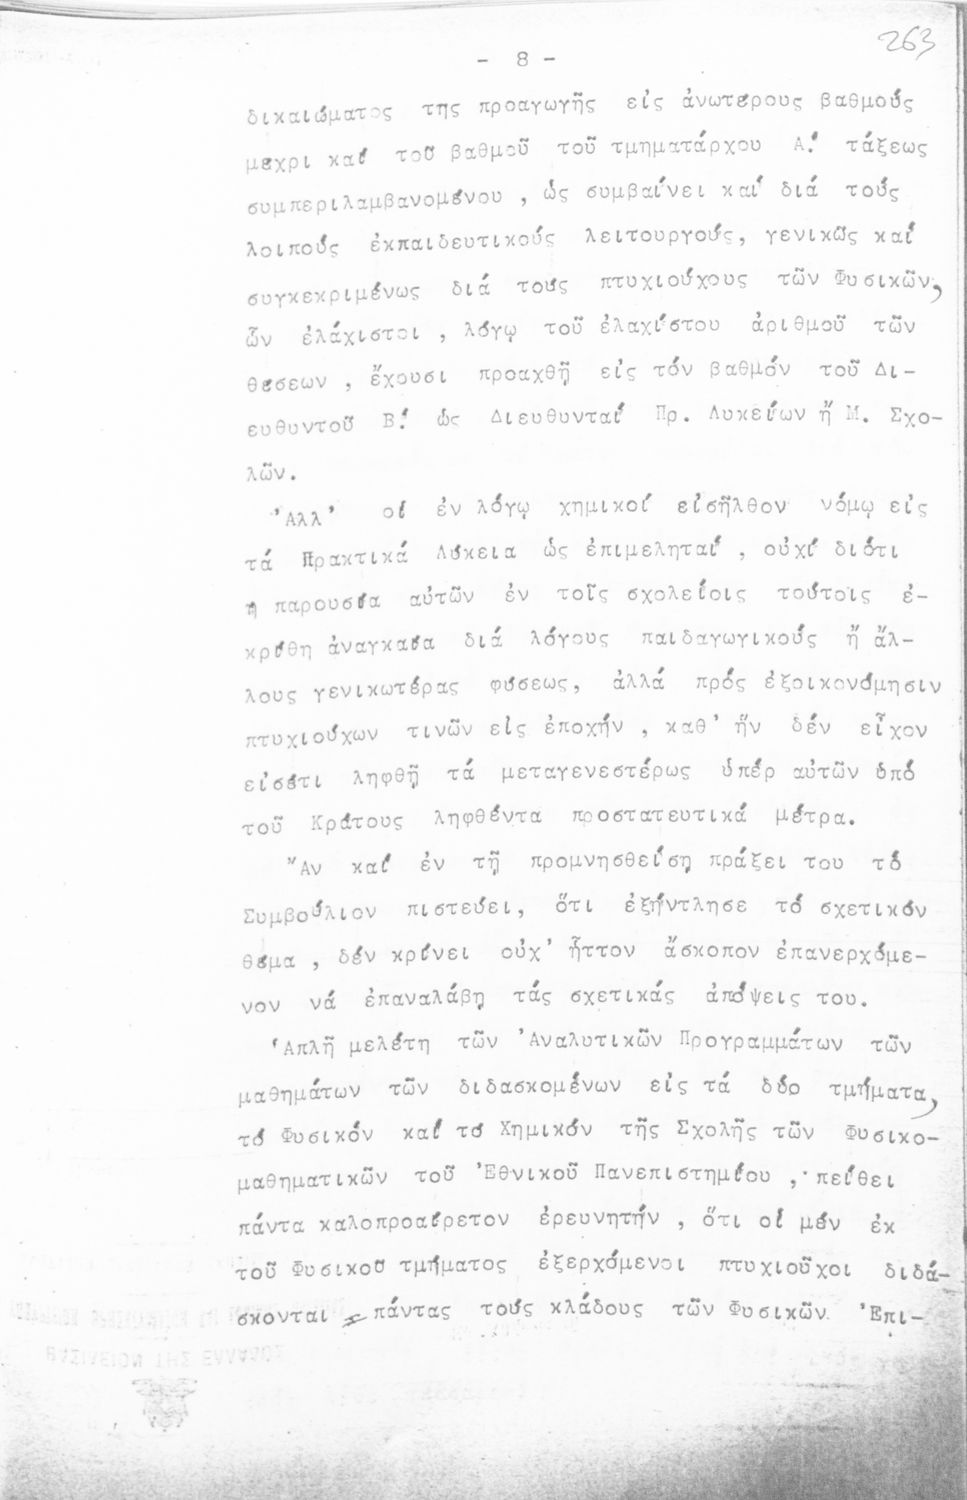 263
- 8 -
δικαιώματος της προαγωγῆς εἰς ἀνωτέρους βαθμούς
μέχρι καί τοῦ βαθμοῦ τοῦ τμηματάρχου Α.' τάξεως
συμπεριλαμβανομένου , ὡς συμβαίνει καί διά τούς
λοιπούς ἐκπαιδευτικούς λειτουργούς, γενικῶς καί
συγκεκριμένως διά τους πτυχιούχους τῶν Φυσικῶν,
ὧν ἐλάχιστοι , λόγῳ τοῦ ἐλαχίστου ἀριθμοῦ τῶν
θέσεων , ἔχουσι προαχθῆ εἰς τόν βαθμόν τοῦ Δι-
ευθυντοῦ Β.' ὡς Διευθυνταί Πρ. Λυκείων ἤ Μ. Σχο-
λῶν.
'Αλλ' οἱ ἐν λόγῳ χημικοί εἰσῆλθον νόμῳ εἰς
τά Πρακτικά Λύκεια ὡς ἐπιμεληταί , οὐχί διότι
ἡ παρουσία αὐτῶν ἐν τοῖς σχολείοις τούτοις ἐ-
κρίθη ἀναγκαία διά λόγους παιδαγωγικούς ἤ ἄλ-
λους γενικωτέρας φύσεως, ἀλλά πρός ἐξοικονόμησιν
πτυχιούχων τινῶν εἰς ἐποχήν , καθ' ἥν δέν εἶχον
εἰσέτι ληφθῆ τά μεταγενεστέρως ὑπέρ αὐτῶν ὑπό
τοῦ Κράτους ληφθέντα προστατευτικά μέτρα.
"Αν καί ἐν τῇ προμνησθείσῃ πράξει του τό
Συμβούλιον πιστεύει, ὅτι ἐξήντλησε τό σχετικόν
θέμα , δέν κρίνει οὐχ' ἧττον ἄσκοπον ἐπανερχόμε-
νον νά ἐπαναλάβῃ τάς σχετικάς ἀπόψεις του.
'Απλῆ μελέτη τῶν 'Αναλυτικῶν Προγραμμάτων τῶν
μαθημάτων τῶν διδασκομένων εἰς τά δύο τμήματα,
τό Φυσικόν καί τό Χημικόν τῆς Σχολῆς τῶν Φυσικο-
μαθηματικῶν τοῦ 'Εθνικοῦ Πανεπιστημίου , πείθει
πάντα καλοπροαίρετον ἐρευνητήν , ὅτι οἱ μέν ἐκ
τοῦ Φυσικοῦ τμήματος ἐξερχόμενοι πτυχιοῦχοι διδά-
σκονται πάντας τούς κλάδους τῶν Φυσικῶν. 'Επι-